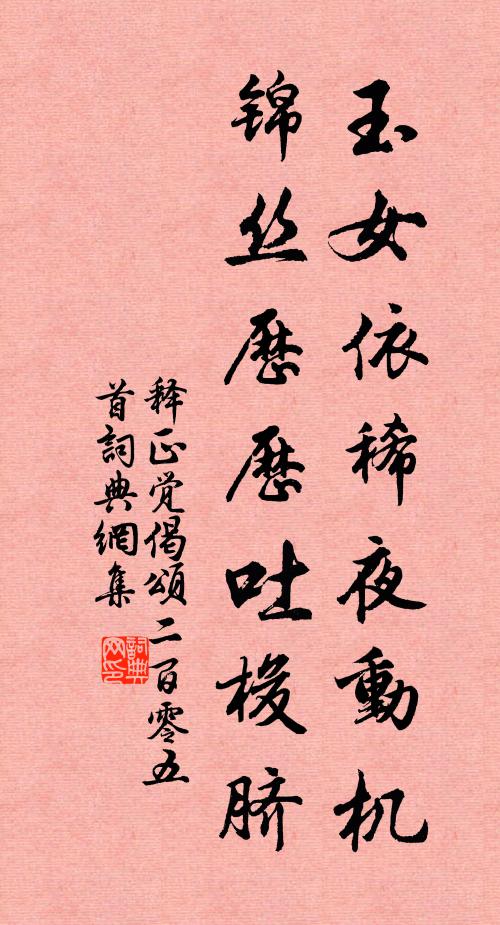 玉女依稀夜動机
锦丝歷歷吐梭脐
释正觉偈頌二百零五
首詞典網集
詞典网印